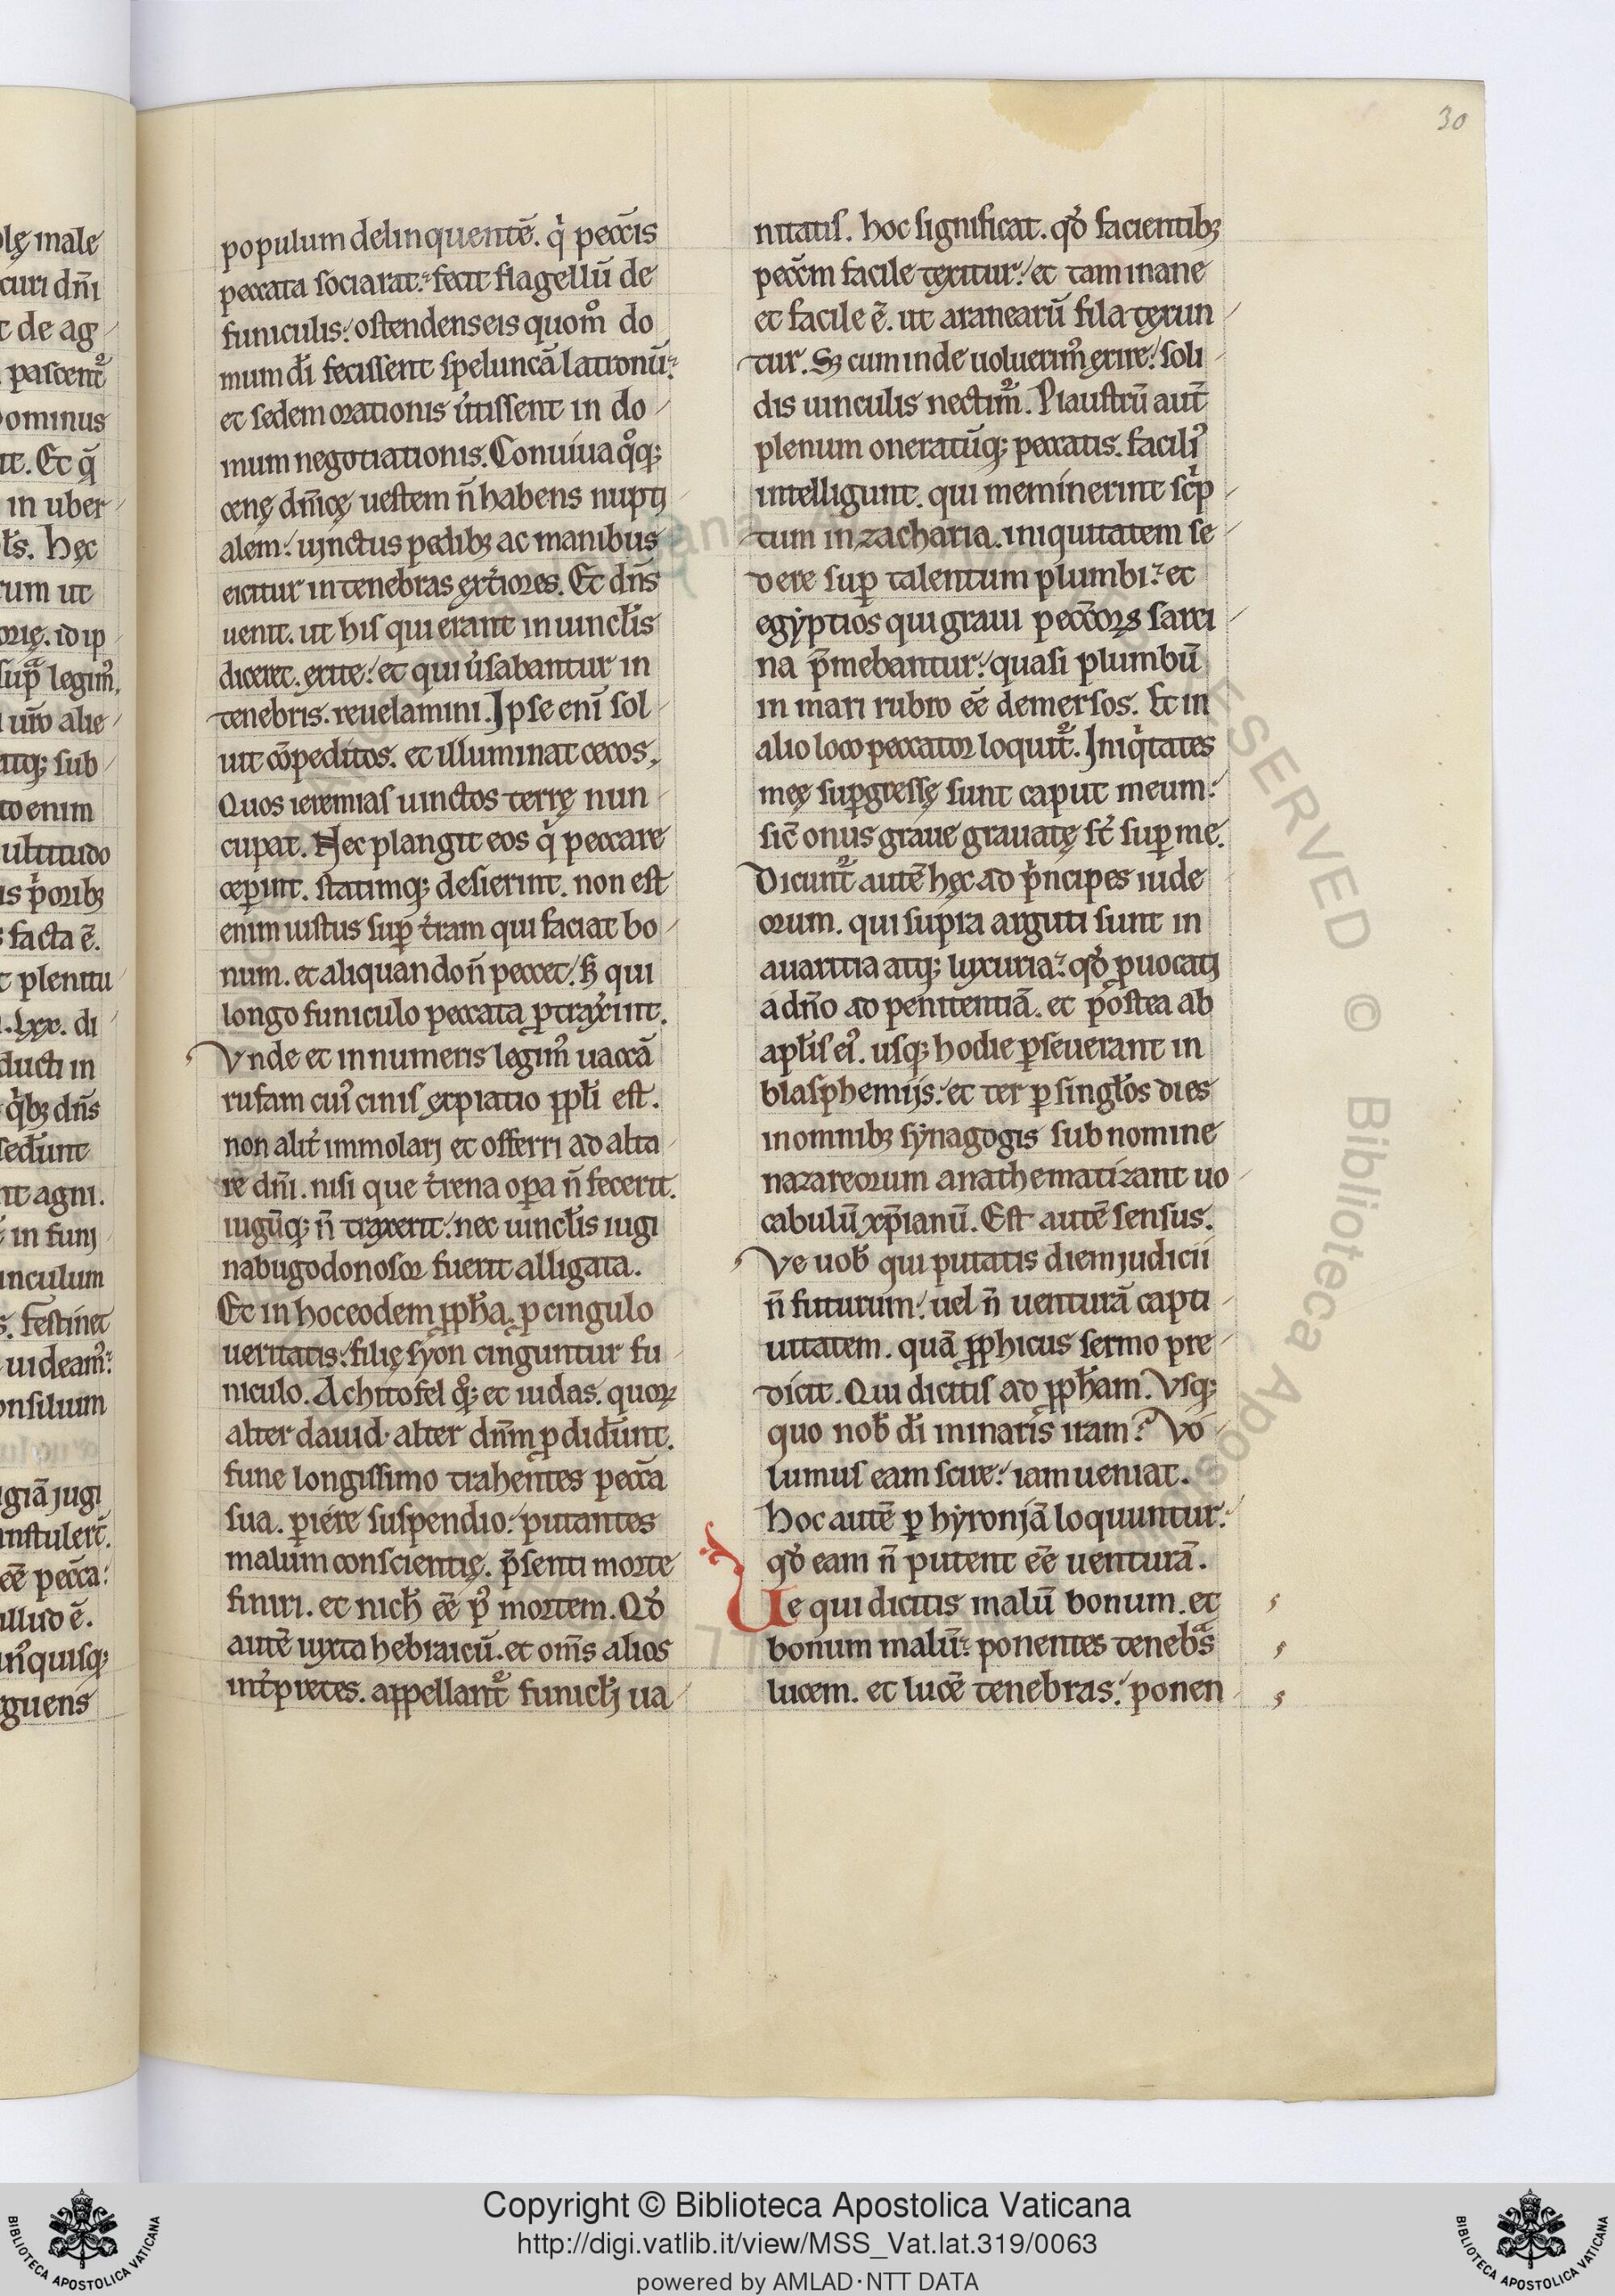 30
populum delinquentē. q̇ pecc̄is
peccata sociarat: fecit flagellū de
funiculis: ostendens eis quom̊ do
mum dī fecissent speluncā latronū:
et sedem orationis u̓tissent in do
mum negotiationis. Conuiua q̊q;
cenę dn̄icę uestem n̄ habens nupti
alem: uinctus pedib; ac manibus
eicitur in tenebras ext̓iores. Et dn̄s
uenit. ut his qui erant in uincl̄is
diceret. exite: et qui u̓sabantur in
tenebris. reuelamini. Ipse enī sol
uit cōpeditos. et illuminat cecos.
Quos ieremias uinctos terrę nun
cupat. Nec plangit eos q̇ peccare
ceperint. statimq; desierint. non est
enim iustus sup̄ t̓ram qui faciat bo
num. et aliquando n̄ peccet: s; qui
longo funiculo peccata ꝑtraxerint.
Vnde et in numeris legim᾿ uaccā
rufam cui᾿ cinis expiatio ppl̄i est.
non alit̓ immolari et offerri ad alta
re dn̄i. nisi que t̓rena oꝑa n̄ fecerit.
iugūq; n̄ traxerit: nec uincl̄is iugi
nabugodonosor fuerit alligata.
Et in hoc eodem ꝓph̄a. ꝓ cingulo
ueritatis: filię syon cinguntur fu
niculo. Achitofel q̊q; et iudas. quoꝝ
alter dauid. alter dn̄m ꝑdider̄unt.
fune longissimo trahentes pecc̄a
sua. ꝑiere suspendio: putantes
malum conscientię. p̄senti morte
finiri. et nich̄ ēē p᾿ mortem. Qd̓
autē iuxta hebraicū. et om̄s alios
int̓p̄retes. appellant᷑ funicl̄i ua
nitatis. hoc significat. qd̓ facientib;
pecc̄m facile texitur: et tam inane
et facile ē. ut aranearū fila texun
tur. S; cum inde uoluerim᾿ exire: soli
dis uinculis nectim᷑. Plaustrū aut̄
plenum oneratūq; peccatis. facili᾿
intelligunt. qui meminerint sc̓p
tum in zacharia. iniquitatem se
dere sup̄ talentum plumbi: et
egyptios qui graui pecc̄oꝝ sarci
na p̄mebantur: quasi plumbū
in mari rubro ēē demersos. Et in
alio loco peccator loquit᷑. Iniq̇tates
meę suꝑgressę sunt caput meum:
sic̄ onus graue grauatę st̄ suꝑ me.
Dicunt᷑ autē hęc ad p̓ncipes iude
orum. qui supra arguti sunt in
auaritia atq; luxuria: qd̓ ꝓuocati
a dn̄o ad penitentiā. et postea ab
apl̄is ei᾿. usq; hodie ꝑseuerant in
blasphemijs: et ter ꝑ singl̄os dies
in omnib; synagogis sub nomine
nazareorum anathematizant uo
cabulū xp̄ianū. Est autē sensus.
Ve uob̄ qui putatis diem judicii
n̄ futurum: uel n̄ uenturā capti
uitatem. quā ꝓphicus sermo pre
dicit. Qui dicitis ad ꝓph̄am. Vsq;
quo nob̄ dī minaris iram? Vo
lumus eam scire: iam ueniat.
Hoc autē ꝑ hyroniā loquuntur:
qd̓ eam n̄ putent ēē uenturā.
Ue qui dicitis malū bonum. et
bonum malū: ponentes tenebᵃs
lucem. et lucē tenebras: ponen
Copyright © Biblioteca Apostolica Vaticana
http://digi.vatlib.it/view/MSS_Vat.lat.319/0063
powered by AMLAD·NTT DATA
BIBLIOTECA APOSTOLICA VATICANA
BIBLIOTECA APOSTOLICA VATICANA